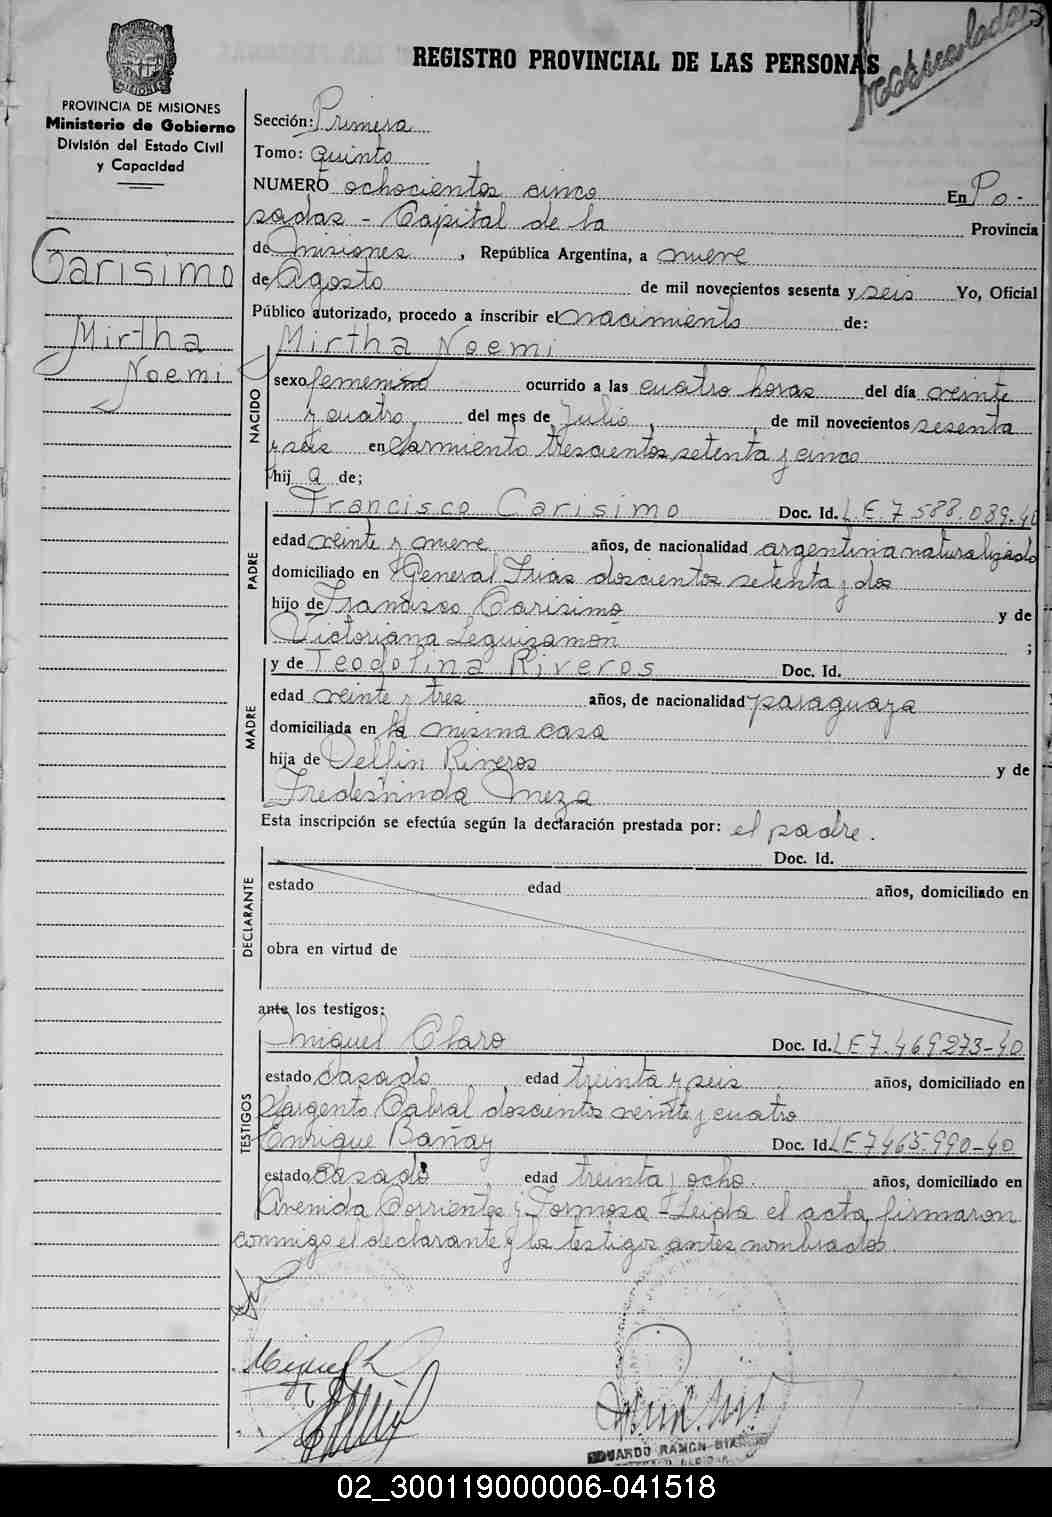 REGISTRO PROVINCIAL DE LAS PERSONAS
PROVINCIA DE MISIONES
Ministerio de Gobierno
División del Estado Civil
y Capacidad
Carisimo
Mirtha
Noemi
Sección: Primera
Tomo: Quinto
NUMERO ochocientos cinco En Po-
sadas - Capital de la Provincia
de Misiones, República Argentina, a nueve
de Agosto de mil novecientos sesenta y seis Yo, Oficial
Público autorizado, procedo a inscribir el nacimiento de:
NACIDO
Mirtha Noemi
sexo femenino ocurrido a las cuatro horas del día veinte
y cuatro, del mes de Julio, de mil novecientos sesenta
y seis en Sarmiento trescientos setenta y cinco
hij a de;
PADRE
Francisco Carisimo Doc. Id. L.E.7.588.089-40
edad veinte y nueve años, de nacionalidad argentina naturalizado
domiciliado en General Frias doscientos setenta y dos
hijo de Francisco Carisimo y de
Victoriana Leguizamon ;
MADRE
y de Teodolina Riveros Doc. Id.
edad veinte y tres años, de nacionalidad paraguaya
domiciliada en la misma casa
hija de Delfin Riveros y de
Fredesvinda Meza
Esta inscripción se efectúa según la declaración prestada por: el padre.
DECLARANTE
Doc. Id.
estado edad años, domiciliado en
obra en virtud de
ante los testigos:
TESTIGOS
Miguel Claro Doc. Id. LE7.469273-40
estado casado, edad treinta y seis años, domiciliado en
Sargento Cabral doscientos veinte y cuatro
Enrique Bañay Doc. Id. LE7465.990-40
estado casado edad treinta y ocho. años, domiciliado en
Avenida Corrientes y Formosa - Leida el acta firmaron
conmigo el declarante y los testigos antes nombrados.
Miguel
EDUARDO RAMON
02_300119000006-041518